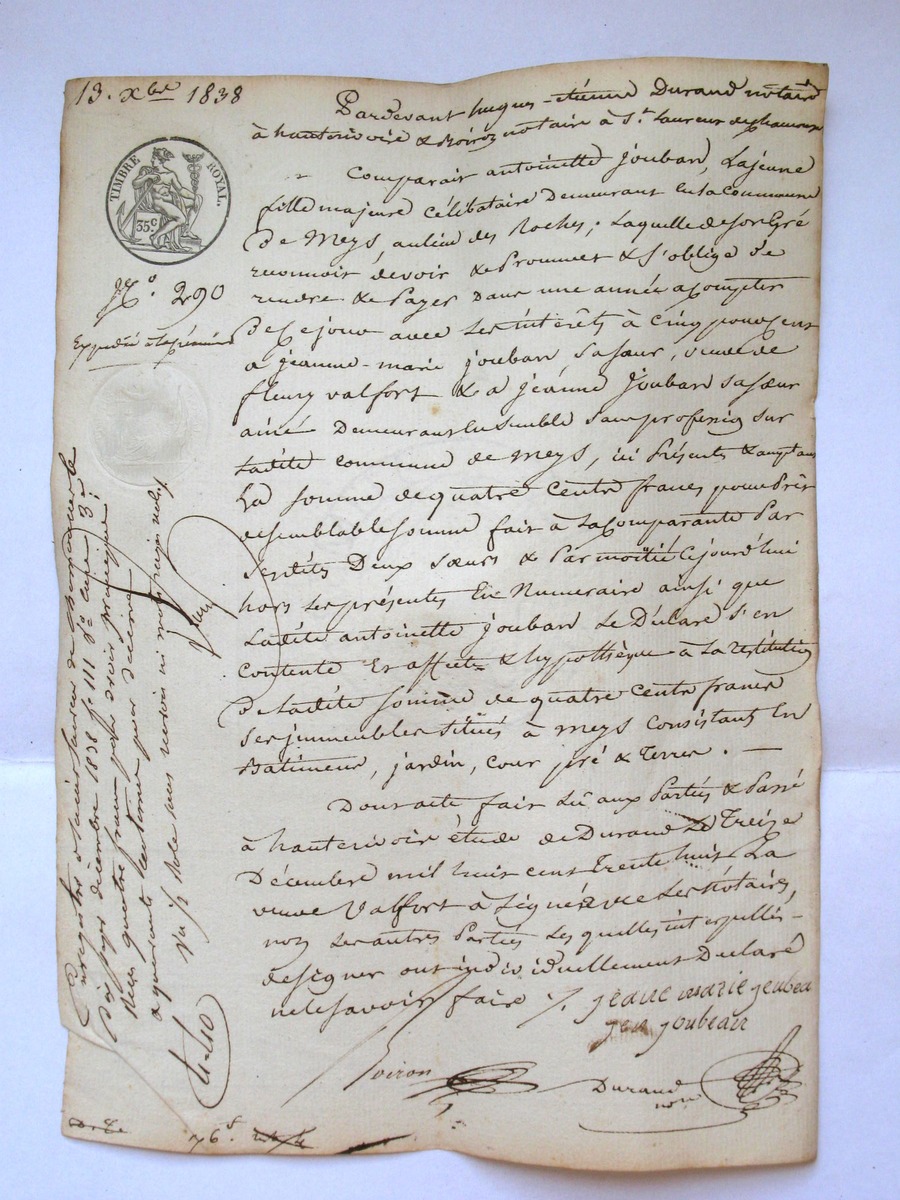 13. Xbre 1838
TIMBRE ROYAL.
35c
No. 290
Expédié à la première
Pardevant hugues-étienne Durand notaire
à hauterivoire & Boiron notaire à St. Laurent de chamousset
Comparait antoinette Joubard, Lajeune
fille majeure célibataire Demeurant en la Commune
De Meys, au lieu des Roches; Laquelle de son Gré
reconnoit devoir & Prommet & s'oblige De
rendre & Payer Dans une année a Compter
De ce jour avec Les intérêts à cinq pour cent
a jeanne-marie joubard sa sœur, veuve de
fleury valfort & a jeanne Joubard sa sœur
ainé Demeurant Ensemble sans profession sur
Ladite commune de Meys, ici Présents & acceptans
La somme de quatre cents francs pour Prêt
de semblable somme fait à La comparante Par
Sesdites Deux sœurs & Par moitié Cejourd'hui
hors Les présentes En Numeraire ainsi que
Ladite antoinette joubard Le Déclare s'en
Contente Et affecte & hypothèque à La restitution
De Ladite Somme de quatre cents francs
Ses immeubles situés à Meys Consistant En
Batiment, jardin, cour pré & Terres. —
Dont acte fait Lû aux Parties & Passé
à hauterivoire étude de Durand Le Treize
Décembre mil huit cent Trente huit La
veuve Valfort à Signé avec Les Notaires,
non Les autres Parties Lesquelles interpellés
de signer ont individuellement Déclaré
ne le savoir faire ./.
jeane marie joubard
Boiron
Durand
nore
Enregistré à Saint Laurent de
dix sept décembre 1838 fo. 111 Vo. Case 3e
Reçu quatre francs pour droit principal
& quarante centimes pour décime
Vu 1/2 Role sans renvois ni mots rayés nuls
4.40
76